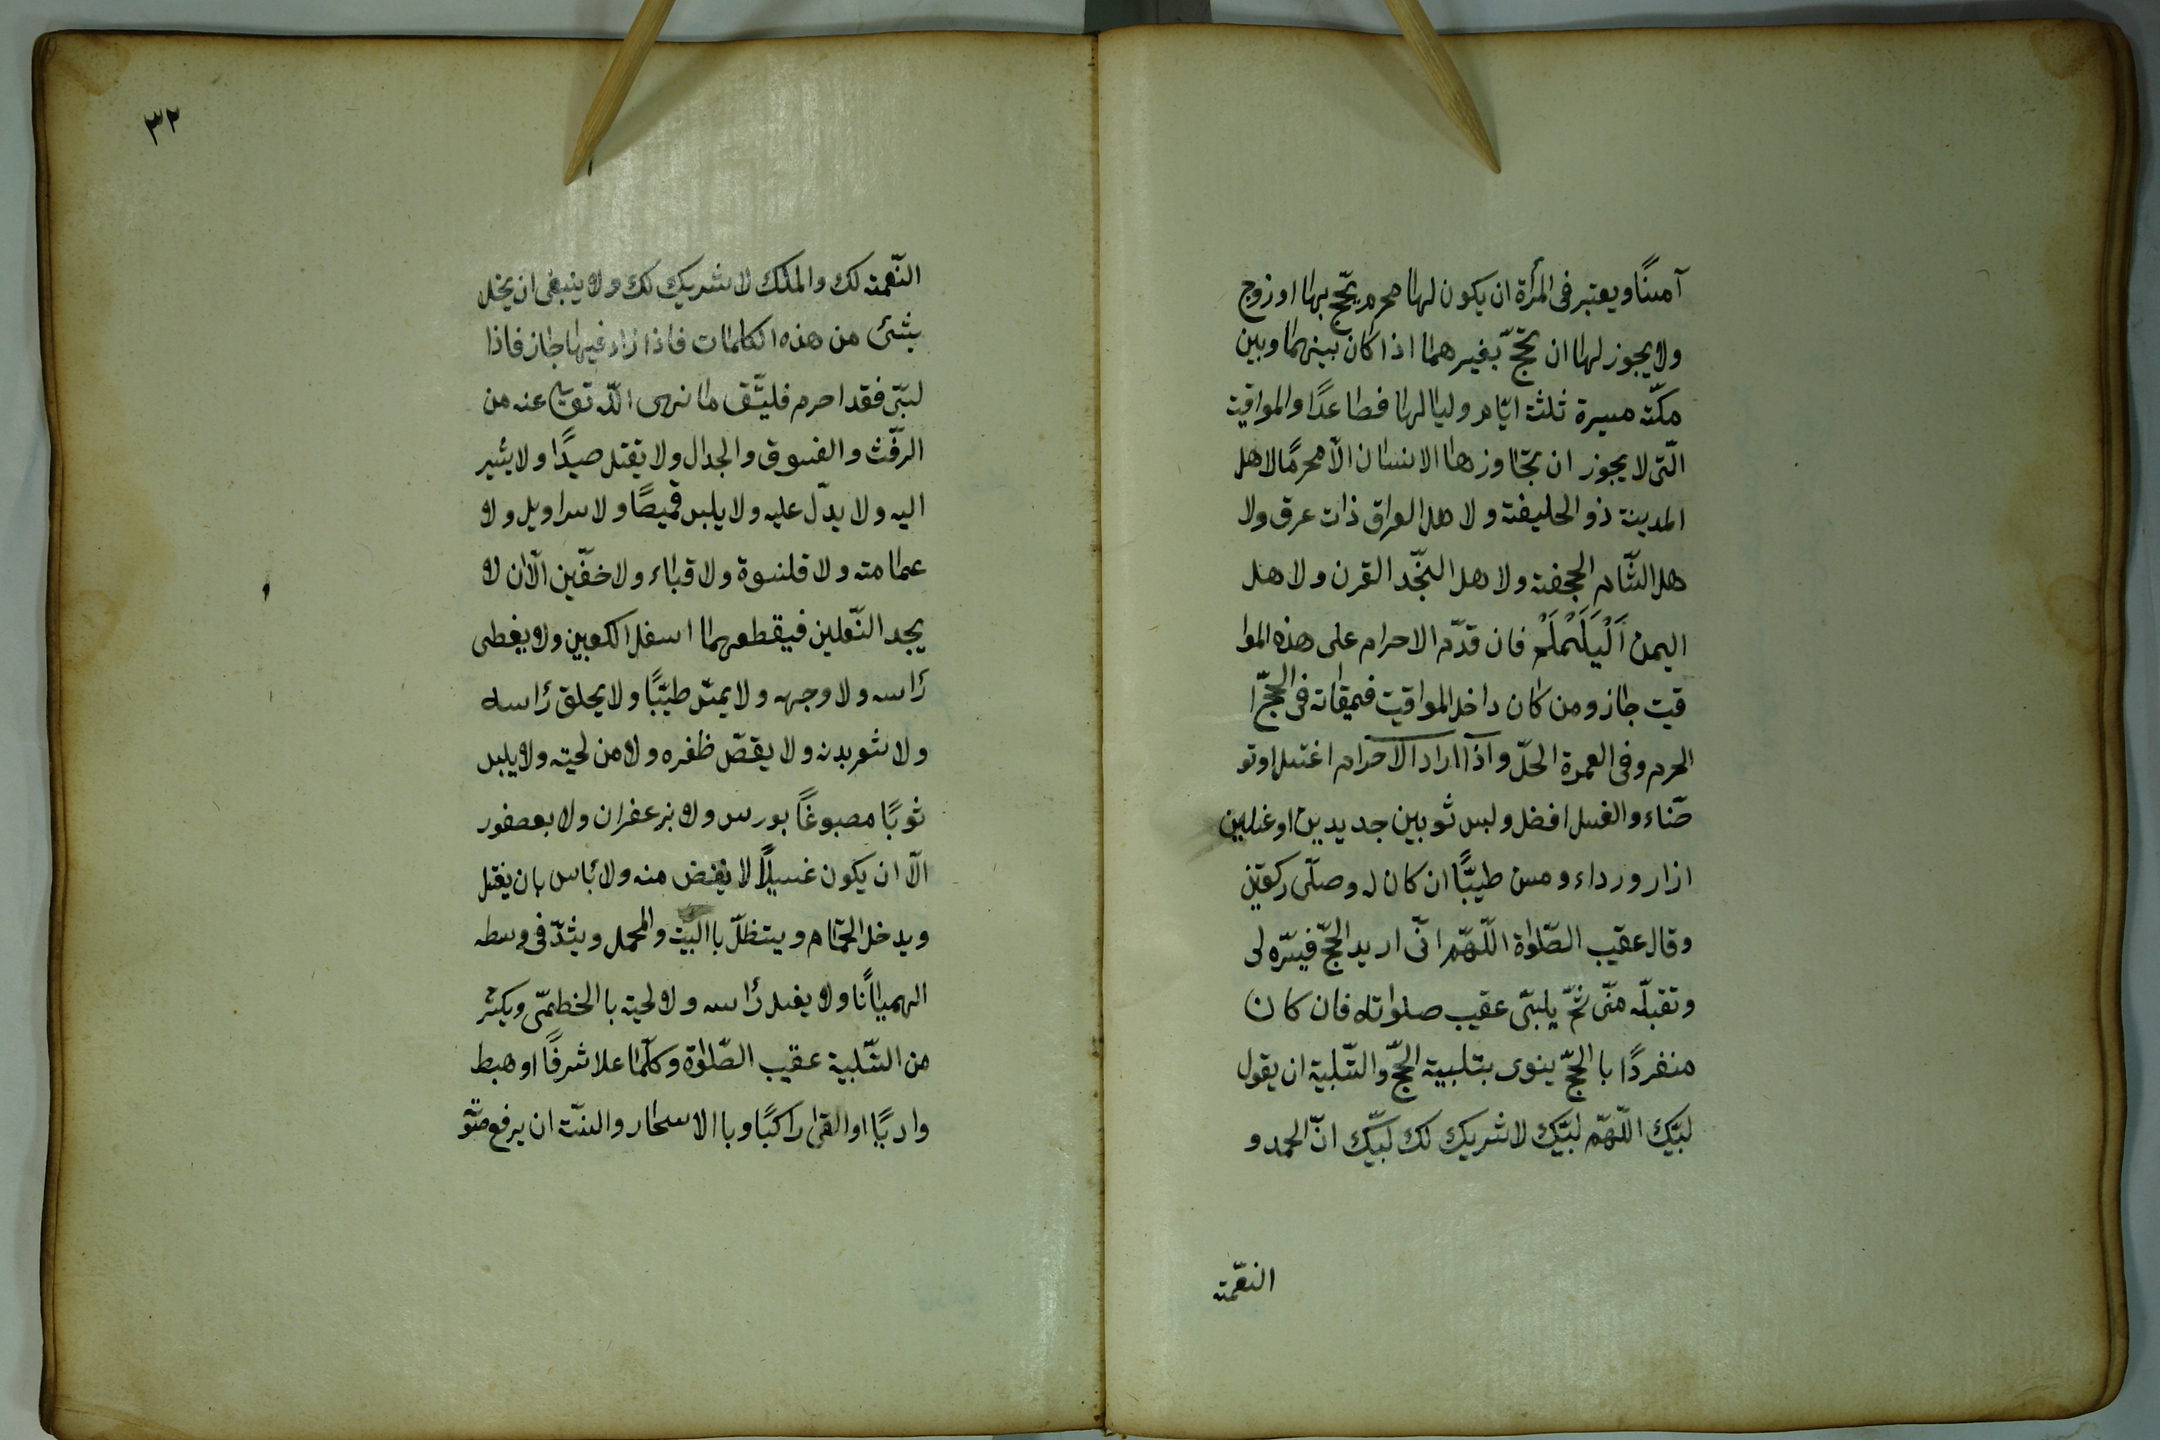 آمنًا ويعتبر فى المرأة ان يكون لها محرم يحجّ بها او زوج
ولا يجوز لها ان تحجّ بغيرهما اذا كان بينهما وبين
مكّة مسيرة ثلثة ايّام وليالها فصاعدًا والمواقيت
الّتى لا يجوز ان يتجاوزها الانسان الّا محرمًا لاهل
المدينة ذو الحليفة ولاهل العراق ذات عرق ولا
هل الشّام الجحفة ولاهل النّجد القرن ولاهل
اليمن اَلْيَلَمْلَمْ فان قدّم الاحرام على هذه الموا
قيت جاز ومن كان داخل المواقيت فميقاته فى الحجّ ا
لحرم وفى العمرة الحلّ واذا اراد الاحرام اغتسل او تو
ضّاء والغسل افضل ولبس ثوبين جديدين او غسلين
ازار ورداء ومس طيبًا ان كان له وصلّى ركعتين
وقال عقيب الصّلوٰة اللّهمّ انّى اريد الحجّ فيسّره لى
وتقبلّه منّى ثمّ يلبّى عقيب صلواته فان كان
منفردًا با الحجّ ينوى بتلبية الحجّ والتّلبية ان يقول
لبّيك اللّهمّ لبّيك لا شريك لك لبّيك انّ الحمد و
النعّمة
٣٢
النّعمة لك والملك لا شريك لك ولا ينبغى ان يخل
بشئ من هذه الكلمات فاذا زاد فيها جاز فاذا
لبّى فقد احرم فليتّق ما نهى اللّه تعالى عنه من
الرّفث والفسوق والجدال ولا يقتل صيدًا ولا يشير
اليه ولا يدّل عليه ولا يلبس قميصًا ولا سراويل ولا
عمامته ولا قلنسوة ولا قباء ولا خفّين الّا ان لا
يجد النّعلين فيقطعهما اسفل الكعبين ولا يغطى
رأسه ولا وجهه ولا يمسّ طيبًا ولا يحلق رأسه
ولا شعر بدنه ولا يقصّ ظفره ولا من لحيته ولا يلبس
ثوبًا مصبوغًا بورس ولا بزعفران ولا بعصفور
الّا ان يكون غسيلًا لا ينفض منه ولا بأس بان يغتسل
ويدخل الحمّام ويستظلّ باالبيت والمحمل ويشدّ فى وسطه
الهميانًا ولا يغسل رأسه ولا لحيته با الخطمّى ويكثر
من التّلبية عقيب الصّلوٰة وكلّما علا شرفًا او هبط
واديًا او القى راكبًا وبا الاسحار والسنّة ان يرفع صتّو